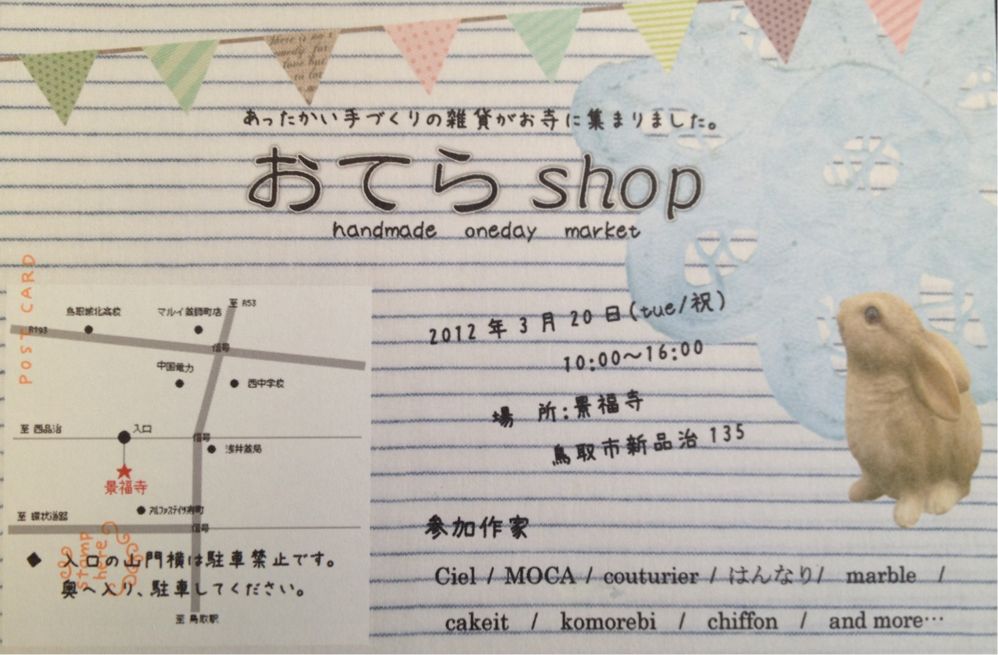 あったかい手づくりの雑貨がお寺に集まりました。
おてら shop
handmade oneday market
POST CARD
2012年3月20日(tue/祝)
10:00〜16:00
場 所:景福寺
鳥取市新品治 135
至 R53
鳥取城北高校
マルイ薬師町店
R193
信号
中国電力
西中学校
至 西品治
入口
信号
浅井薬局
景福寺
アルファステイツ寿町
至 環状道路
信号
stamp here
◆ 入口の山門横は駐車禁止です。
奥へ入り、駐車してください。
至 鳥取駅
参加作家
Ciel / MOCA / couturier / はんなり/ marble /
cakeit / komorebi / chiffon / and more…